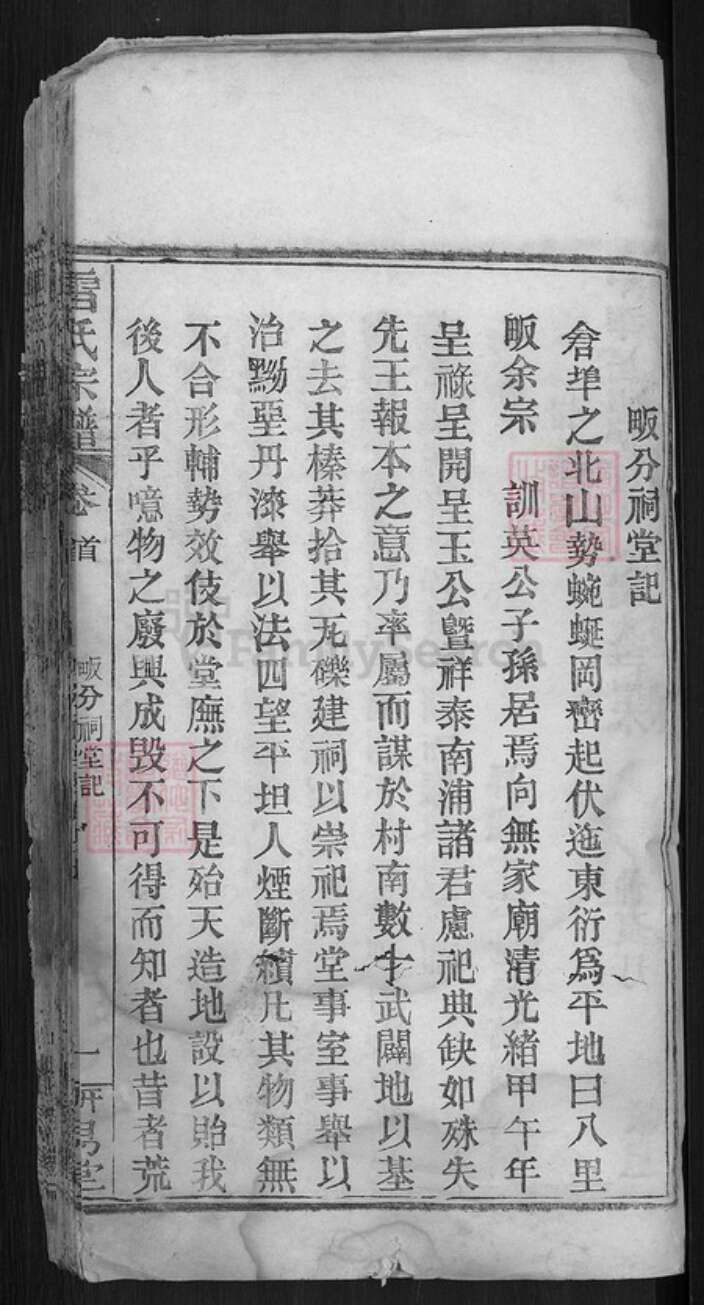 畈分祠堂記
倉埠之北山勢蜿蜒岡巒起伏迤東衍爲平地曰八里
畈余宗 訓英公子孫居焉向無家廟清光緒甲午年
呈祿呈開呈玉公曁祥泰南浦諸君慮祀典缺如殊失
先王報本之意乃率屬而謀於村南數十武闢地以基
之去其榛莽拾其瓦礫建祠以崇祀焉堂事室事舉以
治黝堊丹漆舉以法四望平坦人煙斷續凡其物類無
不合形輔勢效伎於堂廡之下是殆天造地設以貽我
後人者乎噫物之廢興成毀不可得而知者也昔者荒
氏宗譜
卷首
畈分祠堂記
一
FamilySearch